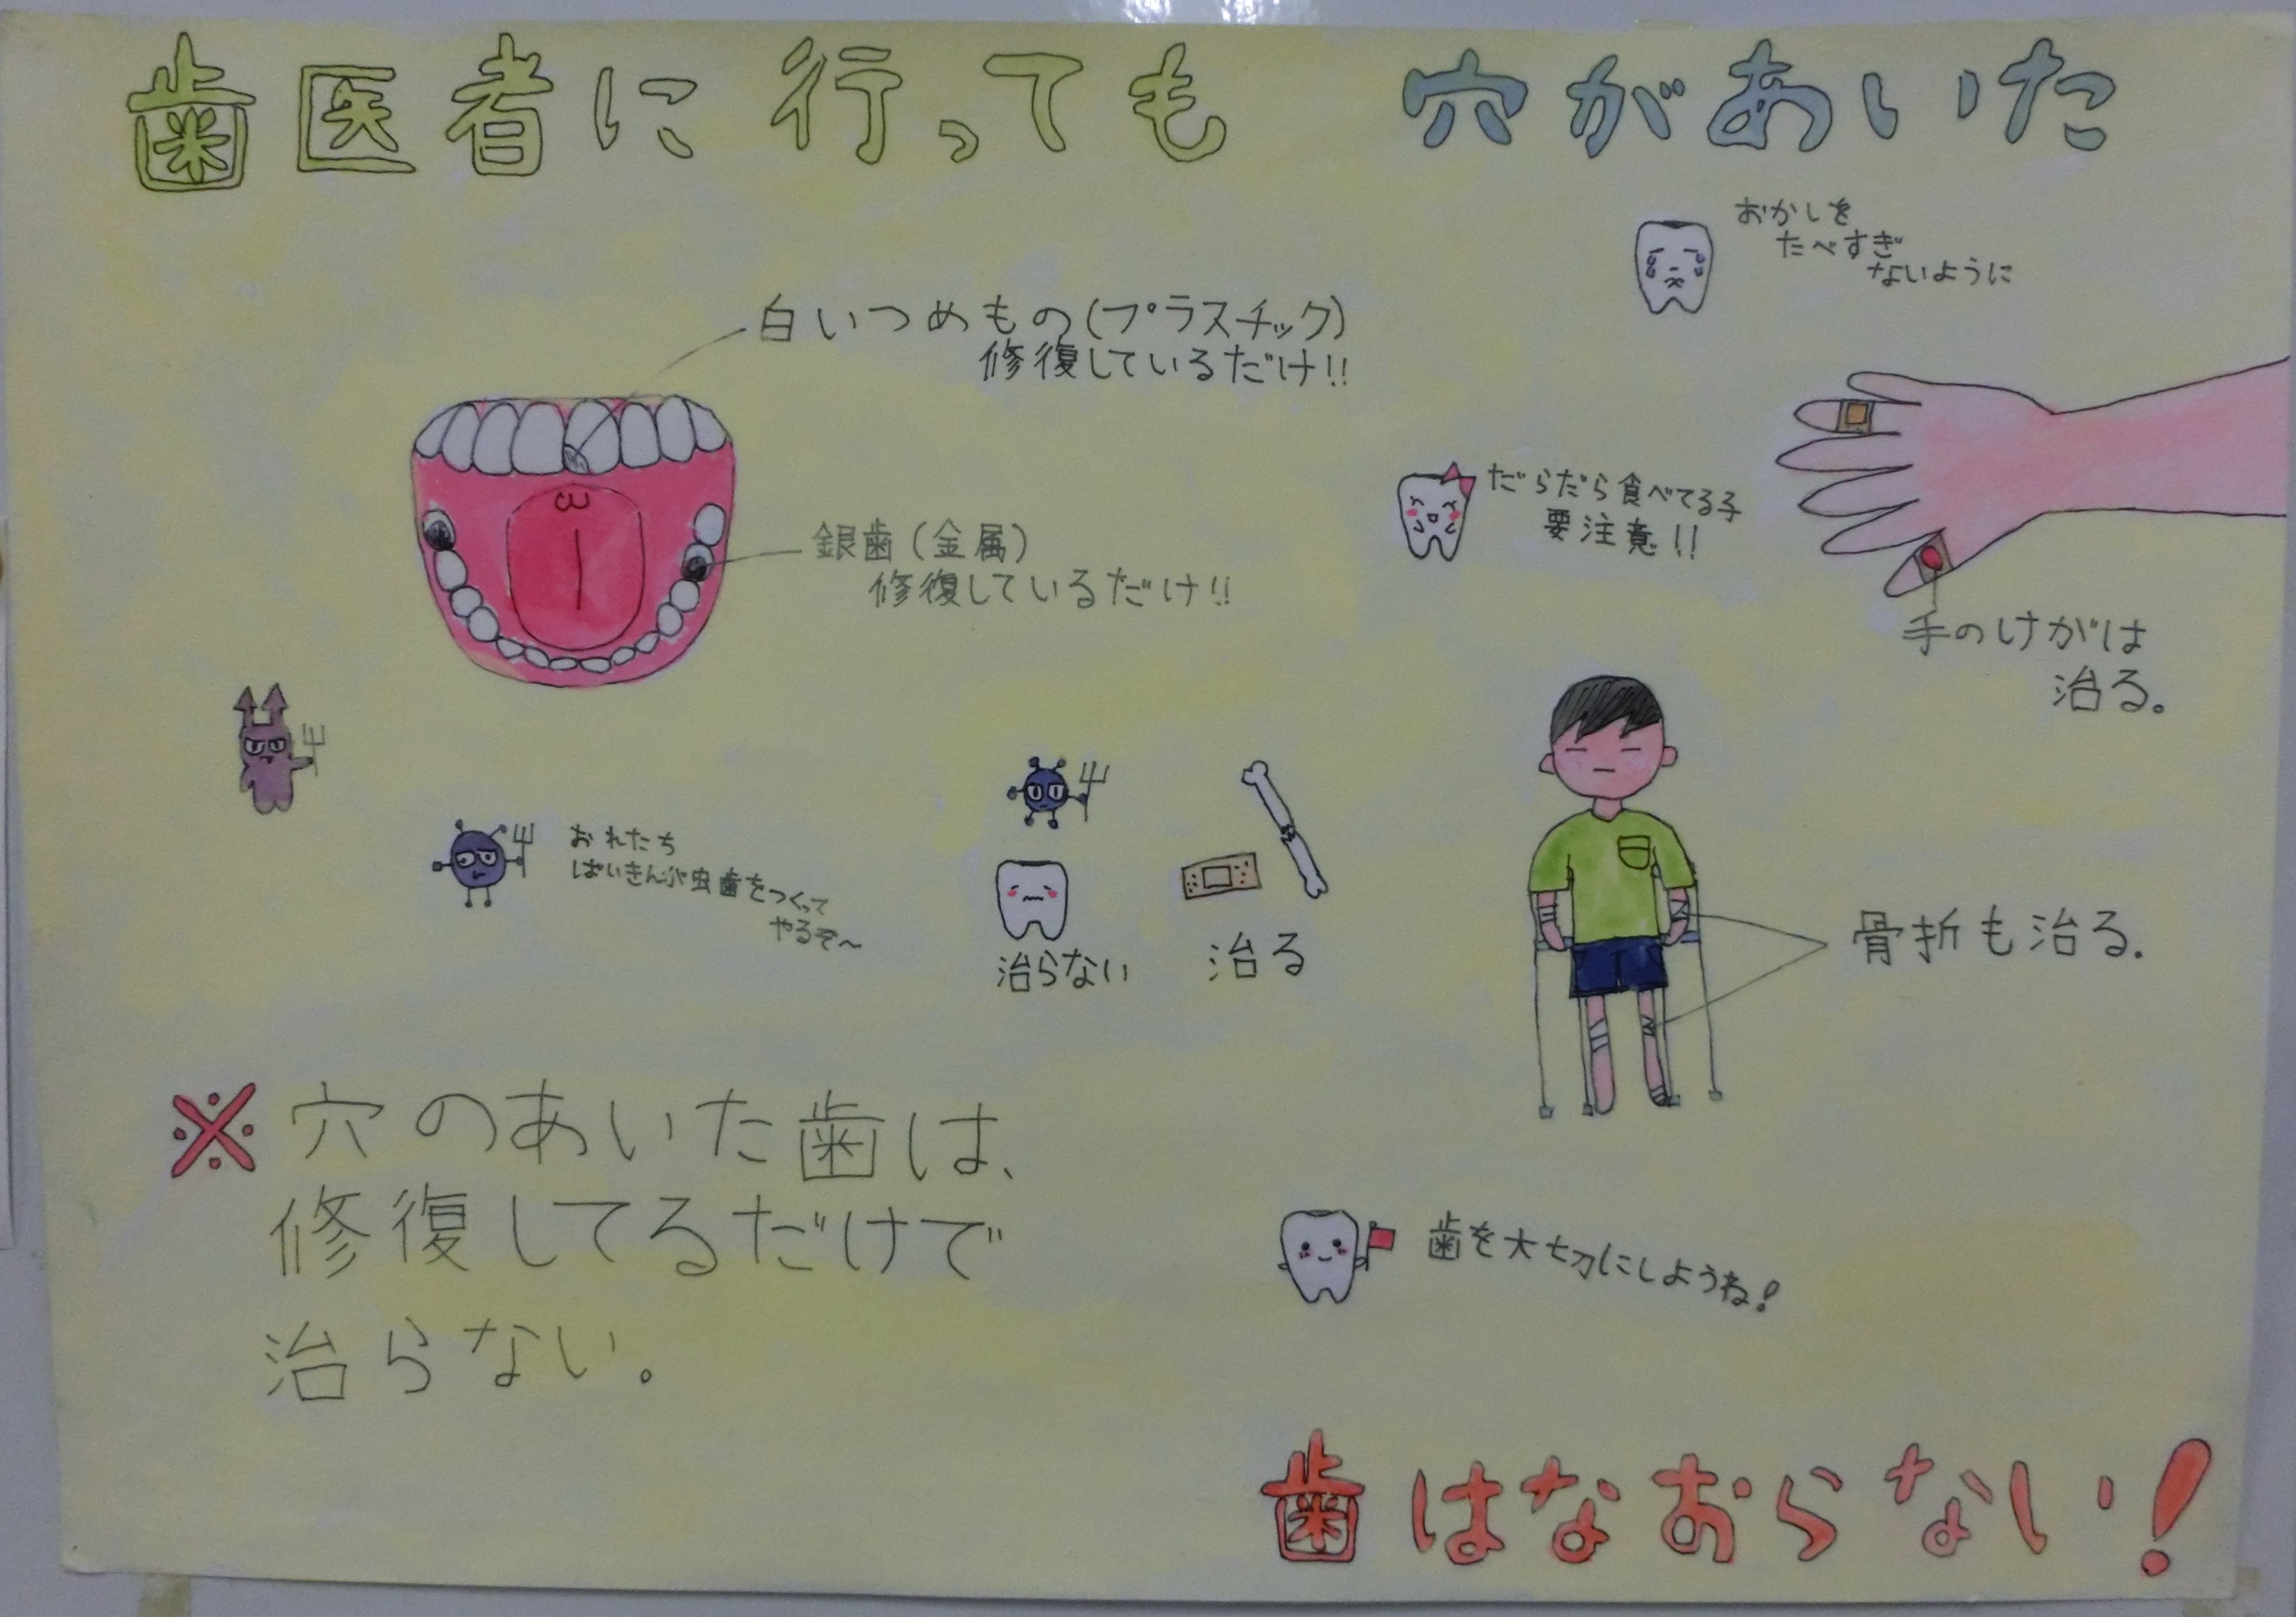 歯医者に行っても 穴があいた
おかしを
たべすぎ
ないように
白いつめもの(プラスチック)
修復しているだけ!!
だらだら食べてる子
要注意!!
銀歯(金属)
修復しているだけ!!
手のけがは
治る。
おれたち
ばいきんが虫歯をつくって
やるぞ〜
治らない
治る
骨折も治る.
※穴のあいた歯は、
修復してるだけで
治らない。
歯を大切にしようね!
歯はなおらない!